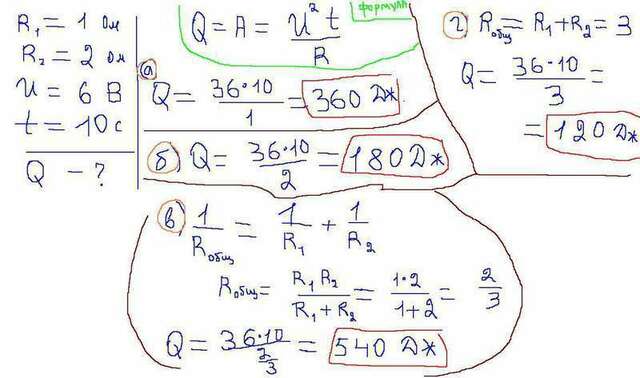 R₁ = 1 Ом
R₂ = 2 Ом
U = 6 В
t = 10 с
Q - ?
формула
Q = A = U² t / R
а) Q = 36·10 / 1 = 360 Дж.
б) Q = 36·10 / 2 = 180 Дж
г) Rобщ = R₁ + R₂ = 3
Q = 36·10 / 3 =
= 120 Дж
в) 1 / Rобщ = 1 / R₁ + 1 / R₂
Rобщ = R₁ R₂ / R₁ + R₂ = 1·2 / 1+2 = 2 / 3
Q = 36·10 / 2/3 = 540 Дж